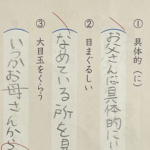 ① 具体的(に)
お父さんに具体的にい
② 目まぐるしい
なめている所を見
③ 大目玉をくらう
いつかお母さんから